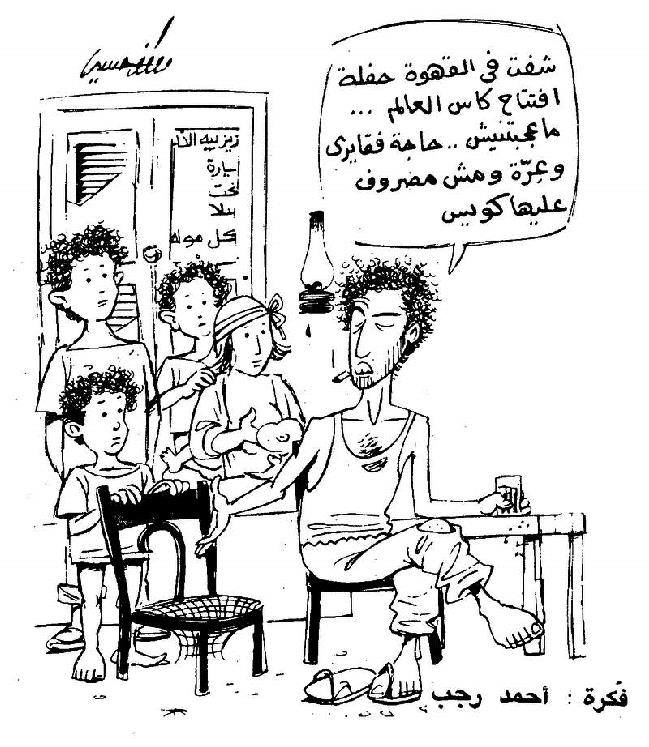 شفت في القهوة حفلة
افتتاح كاس العالم ...
ماعجبتنيش .. حاجة فقايرى
وعِرّة ومش مصروف
عليها كويس
بيه
نحت
كل
فكرة : أحمد رجب